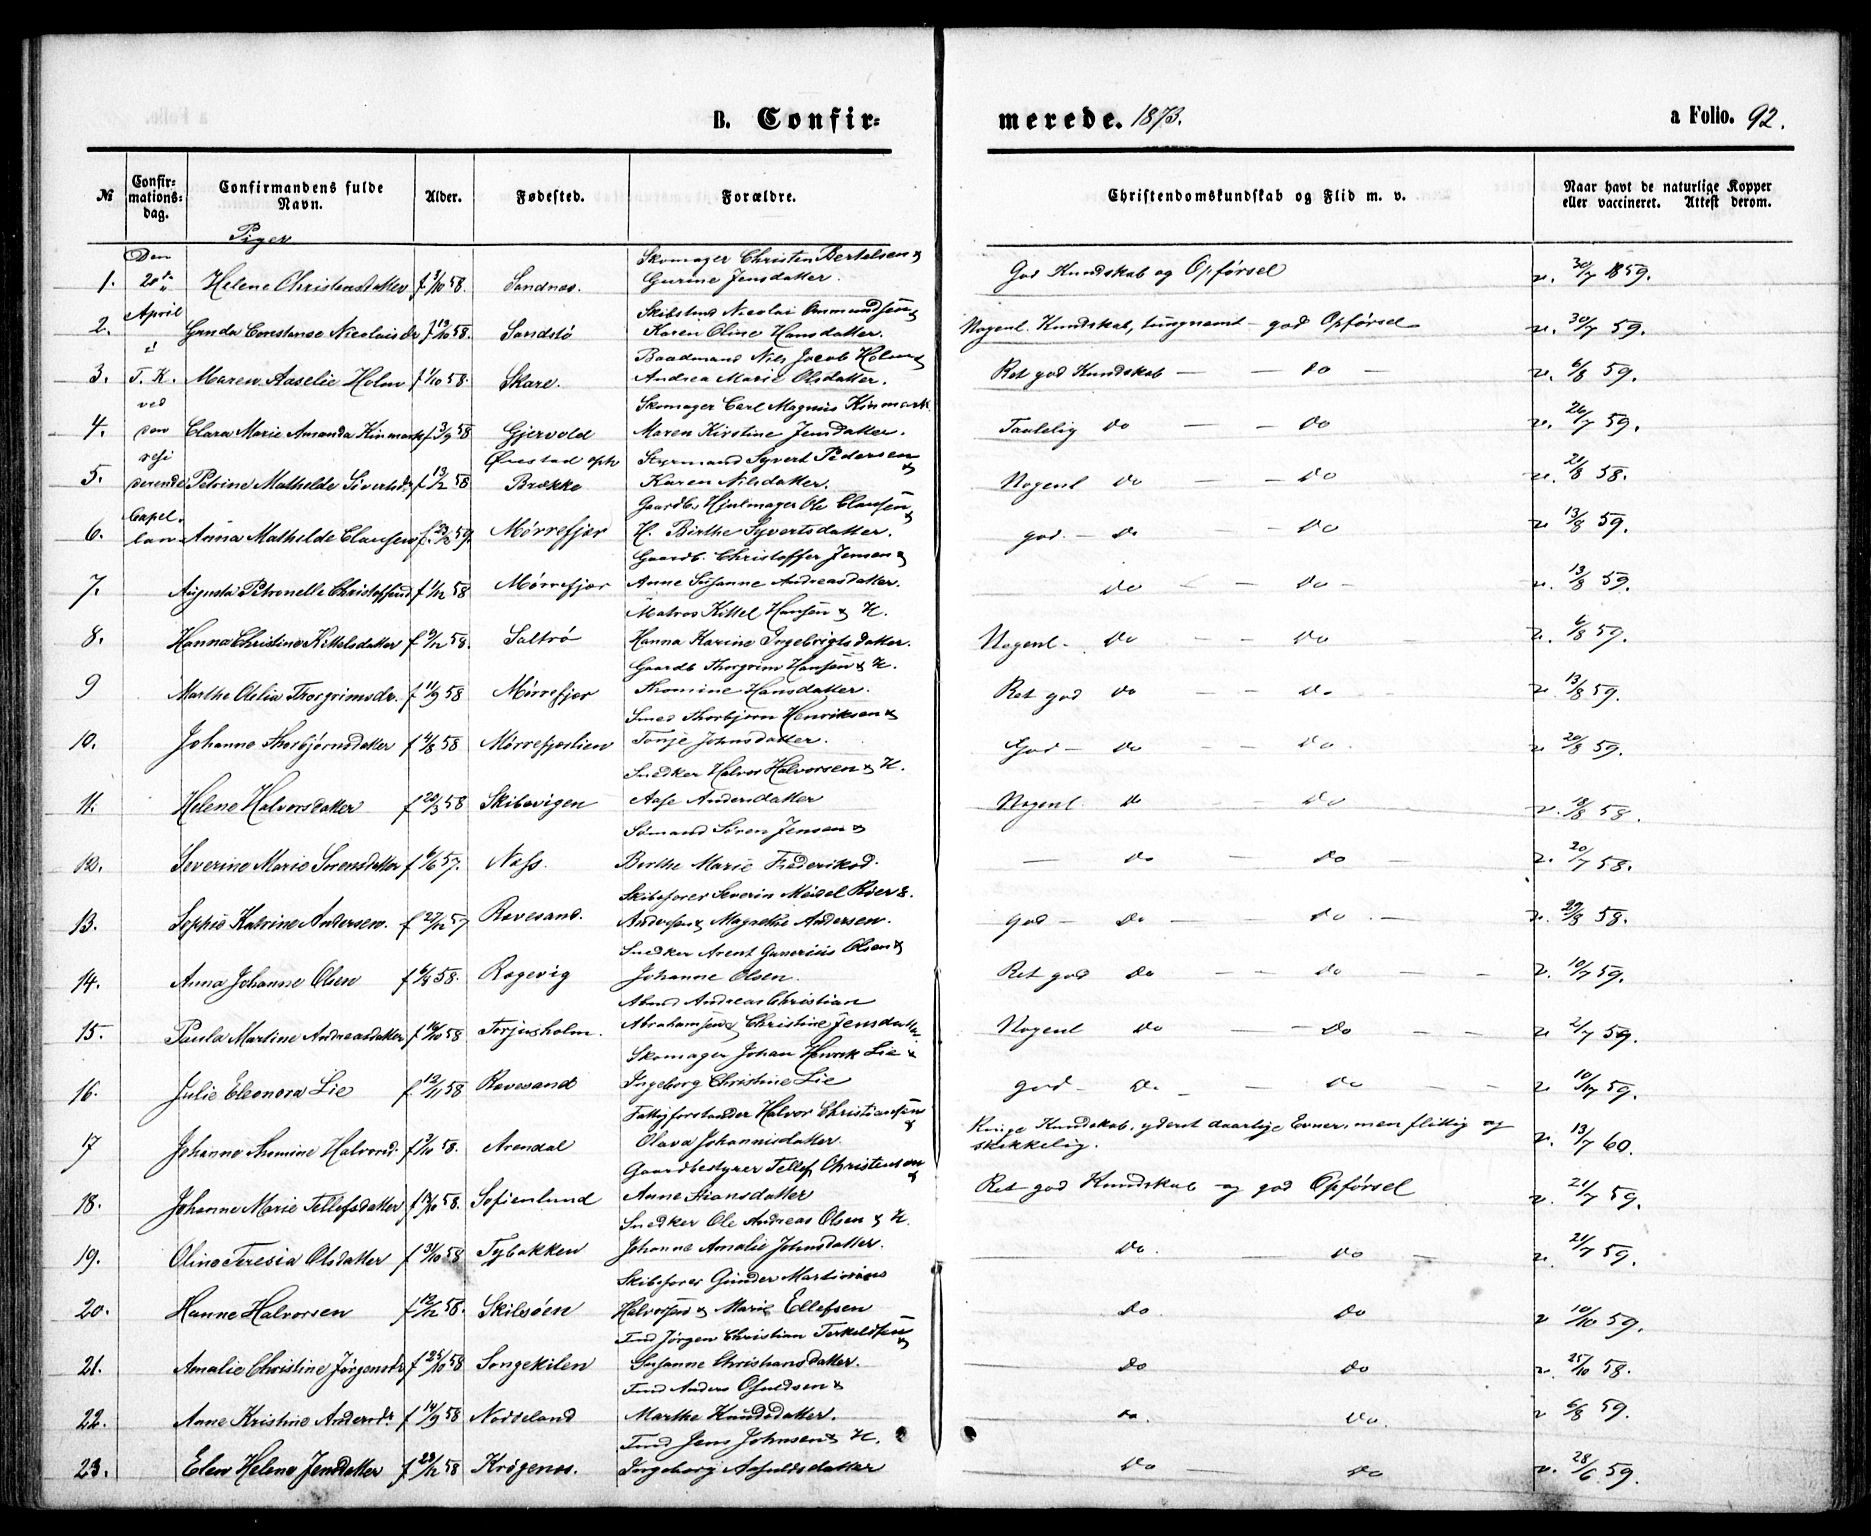 B. Confir-
merede. 1873.
a Folio. 92.
№
Confir-
mations-
dag.
Confirmandens fulde
Navn.
Alder.
Fødested.
Forældre.
Christendomskundskab og Flid m. v.
Naar havt de naturlige Kopper
eller vaccineret. Attest derom.
Piger
Den
20de
April
i
T. K.
ved
den
resi
derende
Capel-
lan
Skomager Christen Bertelsen &
1. Helene Christensdatter f 3/10 58. Sandnæs. Gurine Jensdatter. God Kundskab og Opførsel v. 30/7 1859.
Skibstmd Nicolai Aamundsen &
2. Gunda Constanse Nicolaisdr f 19/10 58. Sandstø Karen Oline Hansdatter. Nogenl. Kundskab, tungnemt - god Opførsel v. 30/7 59.
Baadmand Nils Jacob Holm &
3. Maren Aaselie Holm f 1/10 58. Skare. Andrea Marie Olsdatter. Ret god Kundskab — — do — v. 6/8 59.
Skomager Carl Magnus Kinmark
4. Clara Marie Amanda Kinmark f 3/9 58 Gjervold Maren Kirstine Jensdatter. Taalelig do — — do v. 26/7 59.
Øvestad oph Styrmand Syvert Pedersen &
5. Petrine Mathilde Sivertsdr f 13/12 58 Brække Karen Nilsdatter. Nogenl do — — do v. 21/8 58.
Gaardbr Hjulmager Ole Clausen &
6. Anna Mathilde Clausen f. 23/2 59. Mørrefjær H. Birthe Syvertsdatter. god — do — do v 13/8 59.
Gaardb. Christoffer Jensen &
7. Augusta Petronelle Christoffersd f 1/12 58 Mørrefjær Anne Susanne Andreasdatter. do — — do — v. 13/8 59.
Matros Kittel Hansen & H.
8. Hanna Christine Kittelsdatter f 9/12 58. Saltrø Hanna Karine Ingebrigtsdatter. Nogenl. do — — do — v. 6/8 59.
Gaardb Thorgrim Hansen & H.
9 Marthe Otelia Thorgrimsdr. f 11/9 58 Mørrefjær Thomine Hansdatter. Ret god do — — do — v. 13/8 59.
Smed Thorbjørn Henriksen &
10. Johanne Thorbjørnsdatter f 4/8 58 Mørrefjærlien Tonje Johnsdatter. God — do — — do. v 20/8 59.
Snedker Halvor Halvorsen & H.
11. Helene Halvorsdatter f 20/3 58 Skibsvigen Aase Andersdatter Nogenl. do — do v. 18/8 58.
Sømand Søren Jensen &
12. Severine Marie Sørensdatter f 6/6 57. Næss. Berthe Marie Frederiksd. — do — do — v. 20/7 58.
Skibsfører Severin Meidel Røer &
13. Sophie Katrine Andersen. f 27/12 57 Revesand. Andersen & Magrethe Andersen. god — do — — do. — v. 29/8 58.
Snedker Arent Gunerius Olsen &
14. Anna Johanne Olsen f 6/4 58. Rægevig Johanne Olsen. Ret god do — — do — — v. 10/7 59.
Abmd Andreas Christian
15. Paula Martine Andreasdatter f 16/10 58 Torjusholm. Abrahamsen & Christine Jensdatter. Nogenl do — — do — — v 2/7 59.
Skomager Johan Henrik Lie &
16. Julie Eleonora Lie f 12/11 58 Revesand Ingeborg Christine Lie god — do. — — do — v 10/7 59.
Fattigforstander Halvor Christiansen &
17 Johanne Thomine Halvorsd. f 3/10 58. Arendal Olava Johannisdatter. Ringe Kundskab, yderst daarlige Evner, men flittig og
skikkelig. v. 13/7 60.
Gaardbestyrer Tellef Christensen &
18. Johanne Marie Tellefsdatter f 10/10 58. Sofienlund Anne Stiansdatter Ret god Kundskab — og god Opførsel v. 21/7 59.
Snedker Ole Andreas Olsen & H.
19. Oline Teresia Olsdatter f 31/10 58 Tybakken Johanne Amalie Johnsdatter. do. — do — v. 21/7 59.
Skibsfører Gunder Martinius
20. Hanne Halvorsen f 12/12 58. Skilsøen Halvorsen & Marie Ellefsen do. — do v 10/10 59.
Tmd Jørgen Christian Terkeldsen &
21. Amalie Christine Jørgensdr f 25/10 58 Songekilen Susanne Christiansdatter. do do v. 25/10 58.
Tmd Anders Osuldsen &
22. Anne Kristine Andersdr. f 14/9 58 Nødseland Marthe Knudsdatter. do. do. v 6/8 59.
Tmd Jens Johnsen & H.
23. Elen Helene Jensdatter f 23/12 58 Krøgenes. Ingeborg Aasuldsdatter do — do v. 28/6 59.